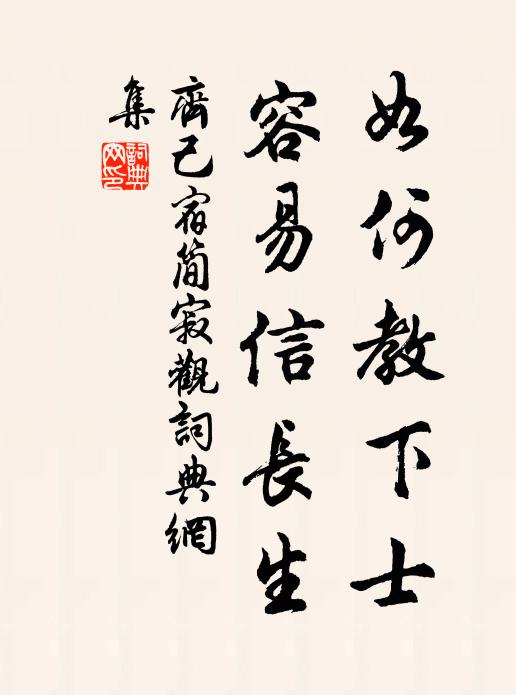 如何教下士
容易信長生
齊己宿簡寂觀詞典網
集
詞典
网印